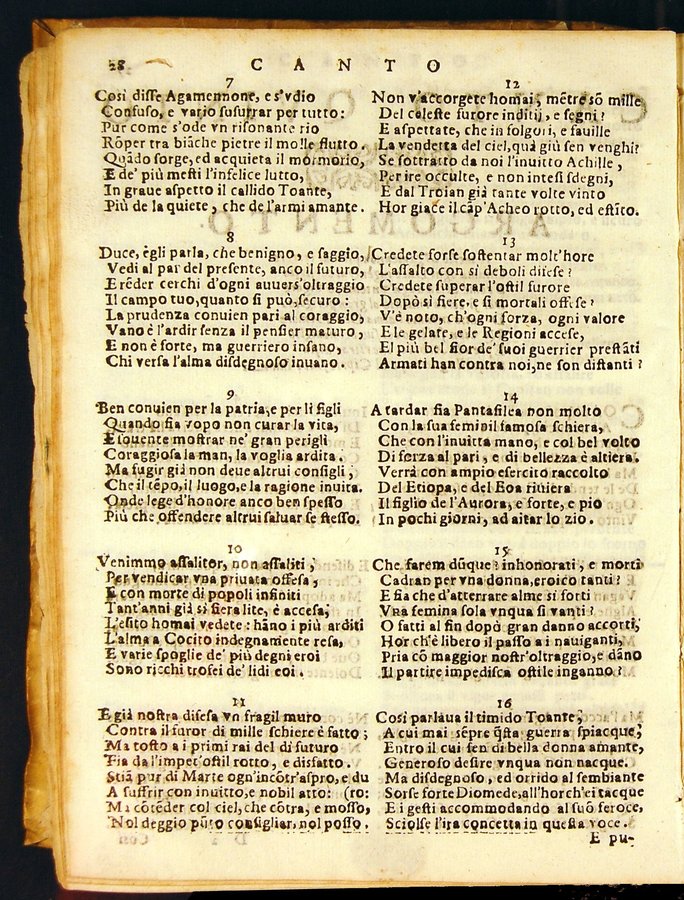 28
CANTO
7
Così disse Agamennone, e s'vdio
Confuso, e vario susurrar per tutto:
Pur come s'ode vn risonante rio
Rõper tra biãche pietre il molle flutto.
Quãdo sorge, ed acquieta il mormorio,
E de' più mesti l'infelice lutto,
In graue aspetto il callido Toante,
Più de la quiete, che de l'armi amante.
8
Duce, ègli parla, che benigno, e saggio,
Vedi al par del presente, anco il futuro,
E rẽder cerchi d'ogni auuers'oltraggio
Il campo tuo, quanto si può, securo:
La prudenza conuien pari al coraggio,
Vano è l'ardir senza il pensier maturo,
E non è forte, ma guerriero insano,
Chi versa l'alma disdegnoso inuano.
9
Ben conuien per la patria, e per li figli
Quando fia vopo non curar la vita,
E souente mostrar ne' gran perigli
Coraggiosa la man, la voglia ardita.
Ma fugir già non deue altrui consigli,
Che il tẽpo, il luogo, e la ragione inuita.
Onde lege d'honore anco ben spesso
Più che offendere altrui saluar se stesso.
10
Venimmo assalitor, non assaliti;
Per vendicar vna priuata offesa,
E con morte di popoli infiniti
Tant'anni già si fiera lite, è accesa;
L'esito homai vedete: hãno i più arditi
L'alma a Cocito indegnamente resa,
E varie spoglie de' più degni eroi
Sono ricchi trofei de' lidi eoi.
11
E già nostra difesa vn fragil muro
Contra il furor di mille schiere è fatto;
Ma tosto a i primi rai del dì futuro
Fia da l'impet'ostil rotto, e disfatto.
Stiã pur di Marte ogn'incõtr'aspro, e du
A suffrir con inuitto, e nobil atto: (ro:
Ma cõtẽder col ciel, che cõtra, e mosso,
Nol deggio pũto consigliar, nol posso.
12
Non v'accorgete homai, mẽtre sõ mille
Del celeste furore inditij, e segni?
E aspettate, che in folgori, e fauille
La vendetta del ciel, quà giù sen venghi?
Se sottratto da noi l'inuitto Achille,
Per ire occulte, e non intesi sdegni,
E dal Troian già tante volte vinto
Hor giace il cãp'Acheo rotto, ed estĩto.
13
Credete forse sostentar molt'hore
L'assalto con si deboli difese?
Credete superar l'ostil furore
Dopò si fiere, e si mortali offese?
V'è noto, ch'ogni forza, ogni valore
E le gelate, e le Regioni accese,
E l più bel fior de' suoi guerrier prestãti
Armati han contra noi, ne son distanti?
14
A tardar fia Pantasilea non molto
Con la sua feminil famosa schiera,
Che con l'inuitta mano, e col bel volto
Di forza al pari, e di bellezza è altiera.
Verrà con ampio esercito raccolto
Del Etiopa, e del Eoa riuiera
Il figlio de l'Aurora, e forte, e pio
In pochi giorni, ad aitar lo zio.
15
Che farem dũque? inhonorati, e morti
Cadran per vna donna, eroico tanti?
E fia che d'atterrare alme si forti
Vna femina sola vnqua si vanti?
O fatti al fin dopò gran danno accorti,
Hor ch'è libero il passo a i nauiganti,
Pria cõ maggior nostr'oltraggio, e dãno
Il partire impedisca ostile inganno?
16
Così parlaua il timido Toante,
A cui mai sẽpre q̃sta guerra spiacque,
Entro il cui sen di bella donna amante,
Generoso desire vnqua non nacque.
Ma disdegnoso, ed orrido al sembiante
Sorse forte Diomede, all'hor ch'ei tacque
E i gesti accommodando al suõ feroce,
Sciolse l'ira concetta in questa voce.
E pu-